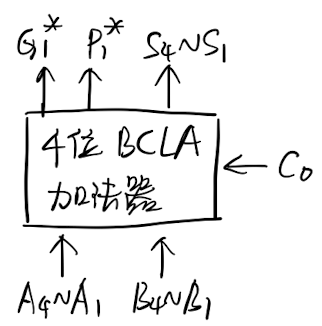 G₁* P₁* S₄~S₁
4位 BCLA
加法器
← C₀
A₄~A₁ B₄~B₁